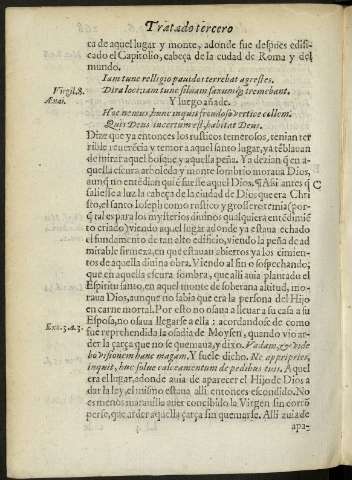 Tratado tercero
ca de aquel lugar y monte, adonde fue despues edifi-
cado el Capitolio, cabeça de la ciudad de Roma y del
mundo.
Iam tune relligio pauidos terrebat agrestes.
Virgil. 8.
Dira loci: iam tunc siluam saxumq; tremebant.
Æneı.
Y luego añade.
Huc nemus, hunc inquit frondoso vertice collem.
Quis Deus incertum est, habitat Deus.
Dize que ya entonces los rusticos temerosos, tenian ter
rible reuerẽcia y temor a aquel santo lugar, ya tẽblauan
de mirar aquel bosque, y aquella peña. Ya dezian q̃ en a-
quella escura arboleda y monte sombrio moraua Dios,
aunq̃ no entẽdian quiẽ fuesse aquel Dios. ¶ Assi antes q̃
C
saliesse a luz la cabeça de la ciudad de Dios que era Chri
sto, el santo Ioseph como rustico y grossero tenia (por-
q̃ tal es para los mysterios diuinos qualquiera entẽdimiẽ
to criado) viendo aquel lugar adonde ya estaua echado
el fundamento de tan alto edificio, viendo la peña de ad
mirable firmeza, en que estauan abiertos ya los cimien-
tos de aquella diuina obra. Viendo al fin o sospechando;
que en aquella escura sombra, que alli auia plantado el
Espiritu santo, en aquel monte de soberana altitud, mo-
raua Dios, aunque no sabia que era la persona del Hijo
en carne mortal. Por esto no osaua a lleuar a su casa a su
Esposa, no osaua llegarse a ella: acordandose de como
Exo. 3. a. 3.
fue reprehendida la osadia de Moysen, quando vio ar-
der la çarça que no se quemaua, y dixo. Vadam, & vide
bo visionem hanc magnam. Y fuele dicho. Ne appropies,
inquit, huc solue calceamentum de pedibus tuis. Aquel
era el lugar, adonde auia de aparecer el Hijo de Dios a
dar la ley, el mismo estaua alli entonces escondido. No
es menos marauilla auer concibido la Virgen sin corrõ
perse, que arder aquella çarça sin quemarse. Alli auia de
apa-